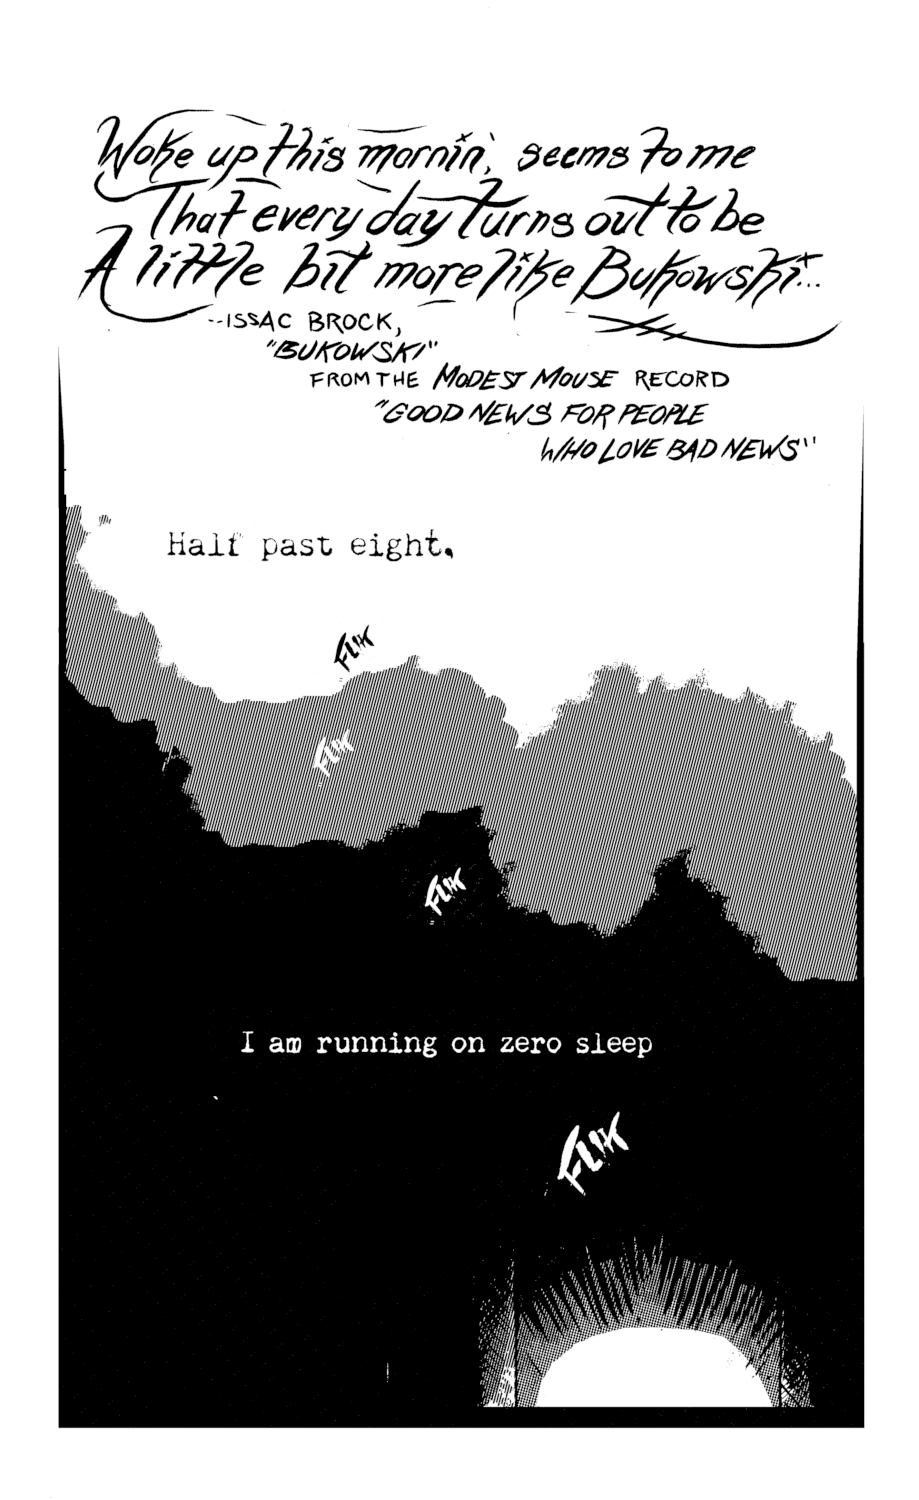 Woke up this mornin', seems to me
That every day turns out to be
A little bit more like Bukowski...
--ISSAC BROCK,
"BUKOWSKI"
FROM THE MODEST MOUSE RECORD
"GOOD NEWS FOR PEOPLE
WHO LOVE BAD NEWS"
Half past eight.
FLIK
FLIK
FLIK
I am running on zero sleep
FLIK